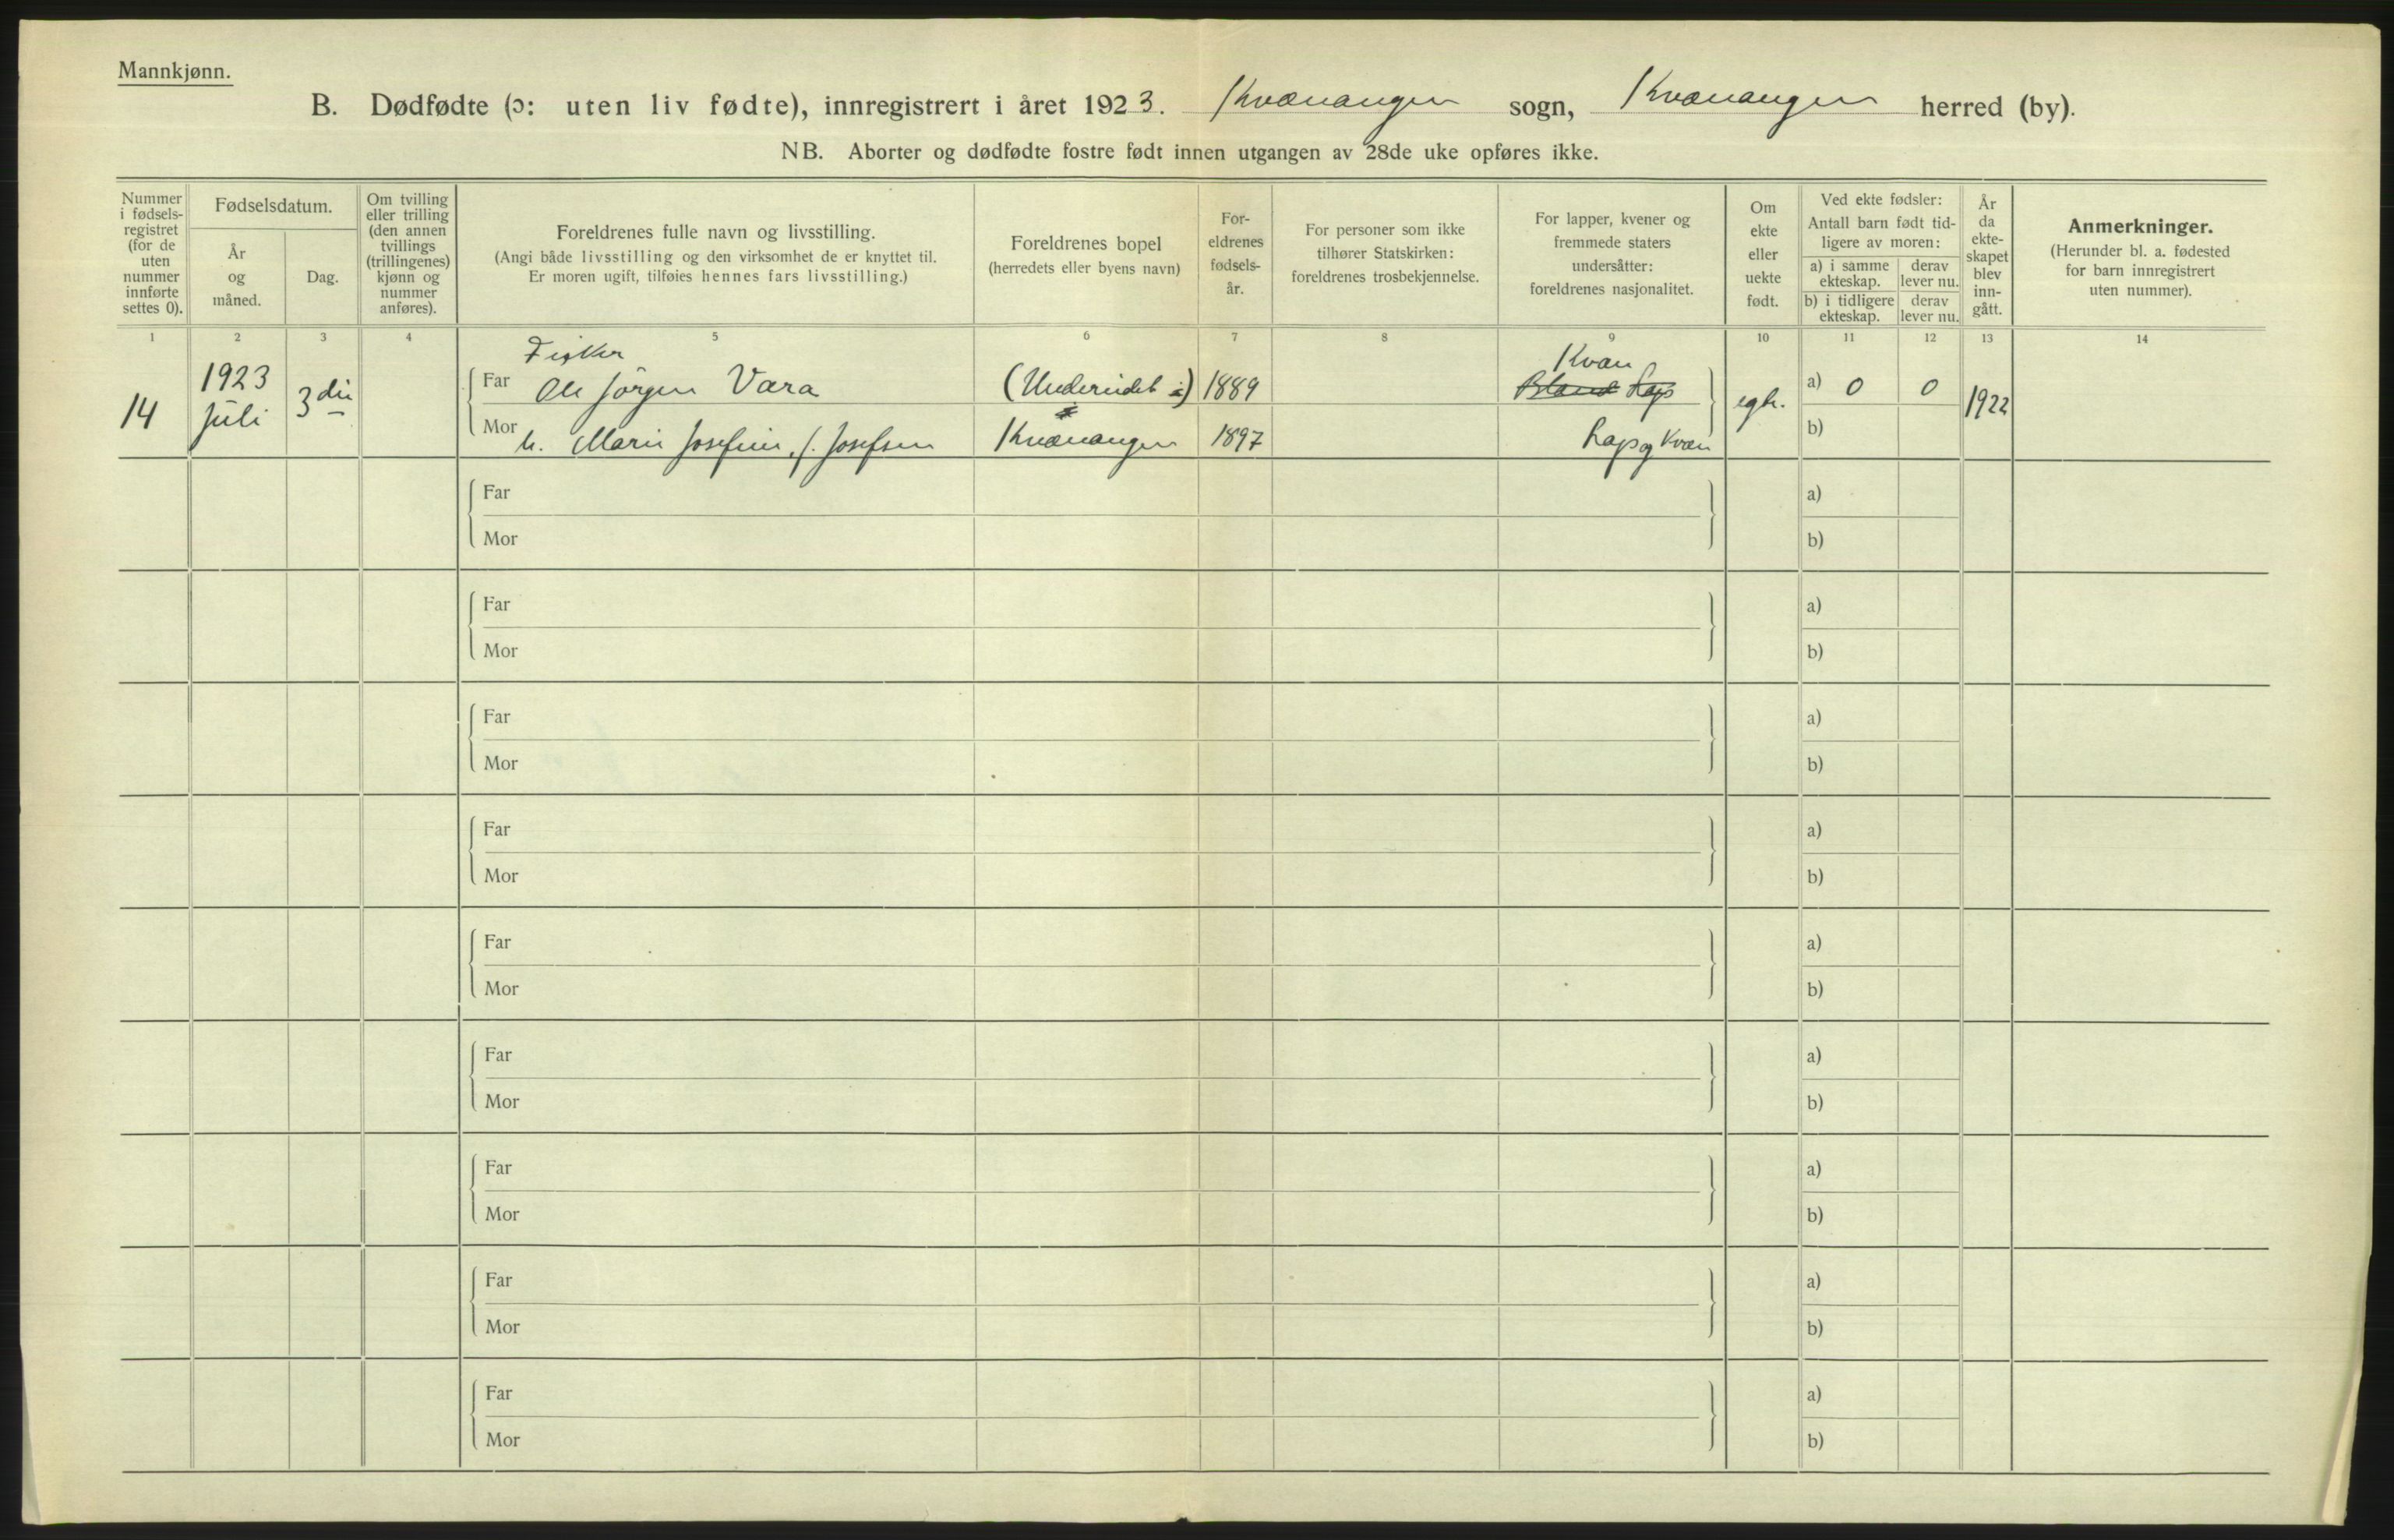 Mannkjønn.
B. Dødfødte (ɔ: uten liv fødte), innregistrert i året 1923. Kvænangen sogn, Kvænangen herred (by).
NB. Aborter og dødfødte fostre født innen utgangen av 28de uke opføres ikke.
Nummer i fødsels-registret (for de uten nummer innførte settes 0).
Fødselsdatum.
År og måned.
Dag.
Om tvilling eller trilling (den annen tvillings (trillingenes) kjønn og nummer anføres).
Foreldrenes fulle navn og livsstilling.
(Angi både livsstilling og den virksomhet de er knyttet til.
Er moren ugift, tilføies hennes fars livsstilling.)
Foreldrenes bopel
(herredets eller byens navn)
For-eldrenes fødsels-år.
For personer som ikke tilhører Statskirken: foreldrenes trosbekjennelse.
For lapper, kvener og fremmede staters undersåtter: foreldrenes nasjonalitet.
Om ekte eller uekte født.
Ved ekte fødsler:
Antall barn født tid-ligere av moren:
a) i samme ekteskap.
derav lever nu.
b) i tidligere ekteskap.
derav lever nu.
År da ekte-skapet blev inn-gått.
Anmerkninger.
(Herunder bl. a. fødested for barn innregistrert uten nummer).
1 2 3 4 5 6 7 8 9 10 11 12 13 14
Fisker
Kvæn
14 1923 juli 3die Far Ole Jørgen Vara 1889 Lap egte. a) 0 0 1922
Mor h. Marie Josefine, f. Josefsen Kvænangen 1897 Lap og Kvæn b)
Far a)
Mor b)
Far a)
Mor b)
Far a)
Mor b)
Far a)
Mor b)
Far a)
Mor b)
Far a)
Mor b)
Far a)
Mor b)
Far a)
Mor b)
Far a)
Mor b)